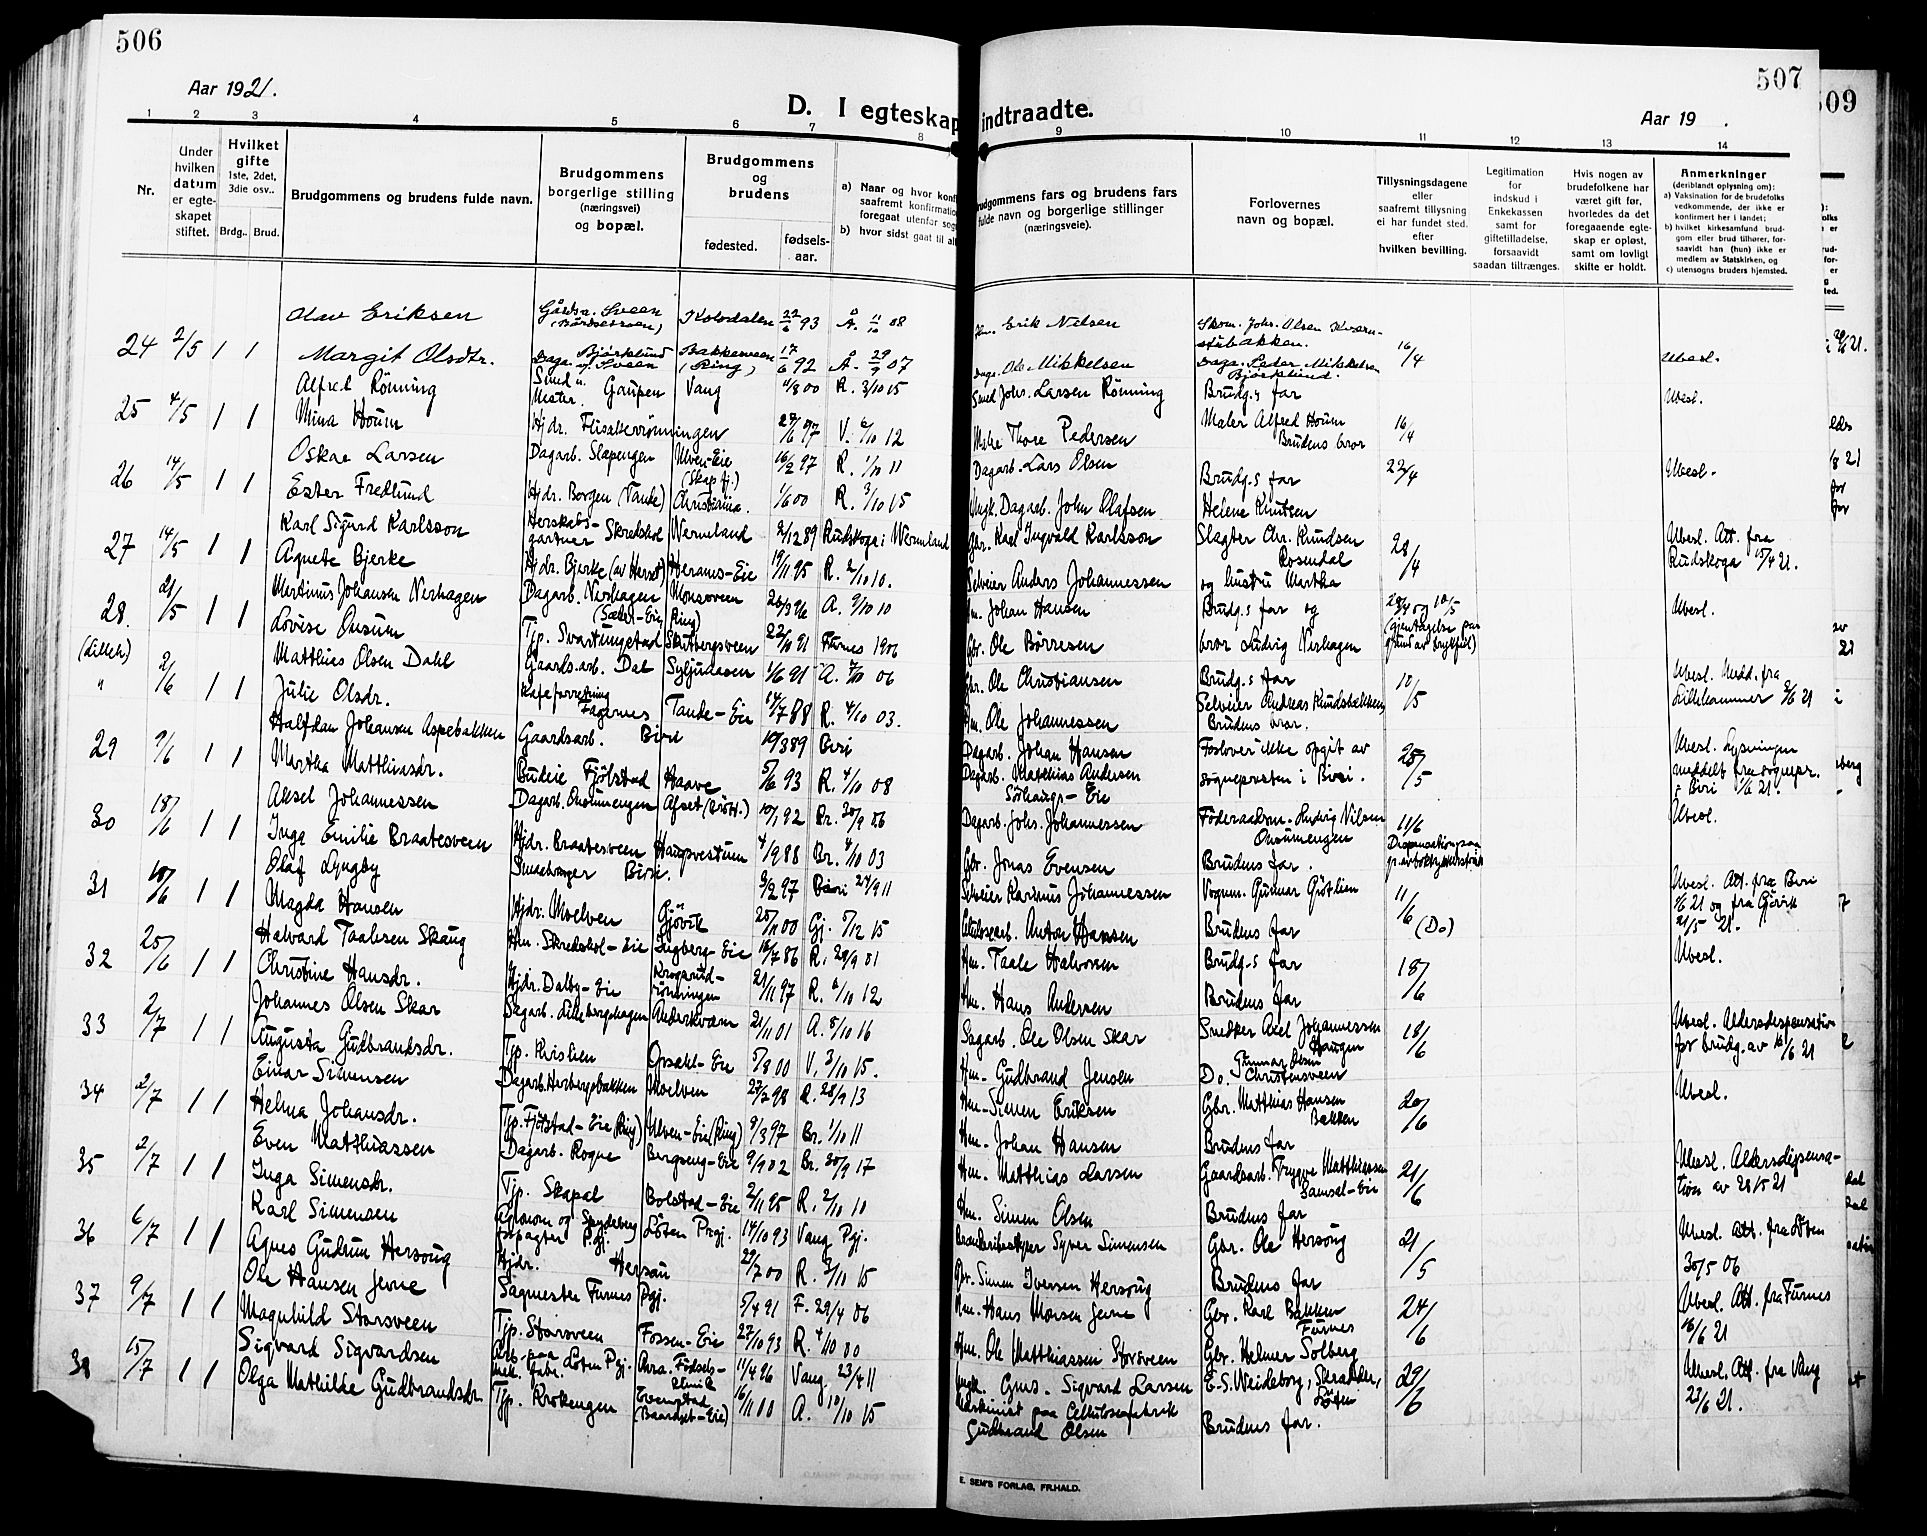 506
Aar 1921.
D. I egteskap
1 2 3 4 5 6 7 8
Nr.
Under hvilken datum er egte-skapet stiftet.
Hvilket gifte 1ste, 2det, 3die osv..
Brdg.. Brud.
Brudgommens og brudens fulde navn.
Brudgommens borgerlige stilling (næringsvei) og bopæl.
Brudgommens og brudens
fødested. fødsels-aar.
a) Naar og hvor konf
saafremt konfirmatio
foregaat utenfor sog
b) hvor sidst gaat til al
24 2/5 1 1
Olav Eriksen
Margit Olsdtr.
22/6 93 11/10 08
17/6 92 A. 29/9 07
25 4/5 1 1
Alfred Rönning Smed u. Mester. Gaupen Vang 4/8 00 R. 3/10 15
Mina Houm Hjdr. V. 6/10 12
26 14/5 1 1
Oskar Larsen Dagarb. Slapengen Ulven-Eie (Skap fj.) 16/2 97 R. 1/10 11
Ester Fredlund Hjdr. Borgen (Tande) Christiania. 1/6 00 R. 3/10 15
27 14/5 1 1
Karl Sigurd Karlsson Herskabs-gartner Skredshol Wermland 2/12 89 Rudskoga i Wermland
Agnete Bjerke Hjdr. Bjerke (av Herset) Herams-Eie 19/11 95 R. 2/10 10.
28. 21/5 1 1
Martinus Johansen Nerhagen Dagarb. Nerhagen 26/3 96 A. 9/10 10
Lovise Onsum Tjp. Svartungstad Skutbergsveen 22/11 91 Furnes 1906
(Lilleh.) " 2/6 1 1
Matthias Olsen Dahl Gaardsarb. Dal Syljuaasen 1/6 91 A. 7/10 06
Julie Olsdr. Kafeforretning Fagernes Tande-Eie 14/7 88 R. 4/10 03.
29 9/6 1 1
Halfdan Johansen Aspebakken Gaardsarb. Biri 10/3 89 Biri
Martha Matthiasdr. Budeie Fjölstad Haave 5/6 93 R. 4/10 08
30 18/6 1 1
Aksel Johannessen Dagarb. Onsumengen Afset (Brött.) 10/1 92 Br. 30/9 06
Inga Emilie Braatesveen Hjdr. Braatesveen Haugsvestuen 4/9 88 Br. 4/10 03
31 18/6 1 1
Olaf Lyngby Biri. 3/2 97 Biri 24/9 11
Magda Hansen Hjdr. Moelven Gjövik 25/11 00 Gj. 5/12 15
32 25/6 1 1
Halvard Taalesen Skaug Hm. Skredshol-Eie Ingberg-Eie 16/7 86 R. 29/9 01
Christine Hansdr. Hjdr. Dalby-Eie 21/11 97 R. 6/10 12
33 2/7 1 1
Johannes Olsen Skar Skogarb. Lilleberghagen Anderskværn 21/11 01 A. 8/10 16
Augusta Gudbrandsdr. Tjp. Opsahl-Eie 5/8 00 V. 3/10 15.
34 2/7 1 1
Einar Simensen Dagarb. Herbergsbakken Moelven 27/7 98 R. 28/9 13
Helma Johansdr. Tjp. Fjölstad-Eie (Ring) Ulven-Eie (Ring) 9/3 97 Br. 1/10 11
35 2/7 1 1
Even Matthiassen Dagarb. Rogne Bergseng-Eie 9/9 02 Br. 30/9 17
Inga Simensdr. Tjp. Skapal Bolstad-Eie 2/11 95 R. 2/10 10
36 6/7 1 1
Karl Simensen Agronom og forpagter Spydeberg Pgj. Löten Prgj. 14/10 93 Vang Pgj.
Agnes Gudrun Hersoug Hjdr. Hersau 29/7 00 R. 3/10 15
37 9/7 1 1
Ole Hansen Jerne Sagmester Furnes Pgj. 5/4 91 F. 29/4 06
Magnhild Storsveen Tjp. Storsveen Fossen-Eie 27/10 93 R. 4/10 00
38 15/7 1 1
Sigvard Sigvardsen Arb. paa mek. fabr. Löten Pgj. Chra. Födsels-klinik 11/4 96 Vang 23/4 11
Olga Mathilde Gudbrandsdr. Tjp. Krokengen Evenstad (Baardset-Eie) 16/11 00 A. 10/10 15
507
509
indtraadte.
Aar 19 .
9 10 11 12 13 14
udgommens fars og brudens fars
fulde navn og borgerlige stillinger
(næringsveie).
Forlovernes navn og bopæl.
Tillysningsdagene eller saafremt tillysning ei har fundet sted. efter hvilken bevilling.
Legitimation for indskud i Enkekassen samt for giftetilladelse, forsaavidt saadan tiltrænges.
Hvis nogen av brudefolkene har været gift før, hvorledes da det foregaaende egte-skap er opløst, samt om lovligt skifte er holdt.
Anmerkninger
(deriblandt oplysning om):
a) Vaksination for de brudefolks vedkommende, der ikke er konfirmert her i landet;
b) hvilket kirkesamfund brud-gom eller brud tilhører, for-saavidt han (hun) ikke er medlem av Statskirken, og
c) utensogns bruders hjemsted.
Hm. Erik Nelsen Skom. Johs. Olsen Kværn-stubakken. 16/4 Ubesl.
Dagarb. Ole Mikkelsen Dagar. Peder Mikkelsen Bjørkelund.
Smed Johs. Larsen Rönning Brudg.s far 16/4 Ubesl.
Thore Pedersen Maler Alfred Houm Brudens bror
Dagarb. Lars Olsen Brudg.s far 22/4 Ubesl.
Ungk. Dagarb. John Olafsen Helene Knutsen
Gbr. Karl Ingvald Karlsson Slagter Chr. Knudsen Rosendal 28/4 Ubesl. Att. fra Rudskoga 15/4 21.
Selveier Anders Johannessen og hustru Martha
Hm. Johan Hansen Brudg.s far og 28/4 og 10/5 (gjentagelse paa grund av trykfeil) Ubesl.
Gbr. Ole Börresen bror Ludvig Nerhagen
Gbr. Ole Christiansen Brudg.s far 10/5 Ubesl. Medd. fra Lillehammer 2/6 21
Hm. Ole Johannessen Selveier Andreas Brudens bror.
Dagarb. Johan Hansen Forlover ikke opgit av 28/5 Ubesl. Lysningen meddelt fra sognepr. i Biri 1/6 21.
Dagarb. Matthias Andersen Sörhaugs-Eie sognepresten i Biri.
Dagarb. Johs. Johannessen Föderaadsm. Ludvig Nilsen Onsumengen 11/6 Ubesl.
Gbr. Jonas Evensen Brudens far.
Selveier Karinus Johannessen Vognm. Gunnar Gjötlien 11/6 (Do) Ubesl. Att. fra Biri 1/6 21 og fra Gjövik 21/5 21.
Cellulosearb. Anton Hansen Brudens far
Hm. Taale Halvorsen Brudg.s far 18/6 Ubesl.
Hm. Hans Andersen Brudens far
Skogarb. Ole Olsen Skar Snedker Axel Johannessen Haugen 18/6 Ubesl. Aldersdispensation for brudg. av 16/6 21
Hm. Gudbrand Jensen Do. Gunnar Olsen Christensveen
Hm. Simen Eriksen Gbr. Matthias Hansen Bakken 20/6 Ubesl.
Hm. Johan Hansen Brudens far
Hm. Matthias Larsen Gaardsarb. Trygve Matthiassen Samsal-Eie 21/6 Ubesl. Aldersdispensa-tion av 28/5 21
Hm. Simen Olsen Brudens far
Syver Simensen Gbr. Ole Hersoug 21/5 Ubesl. Att. fra Löten 30/5 06
Gbr. Simen Iversen Hersoug Brudens far
Hm. Hans Monsen Jerne Gbr. Karl Bakken Furnes 24/6 Ubesl. Att. fra Furnes 16/6 21
Hm. Ole Matthiassen Storsveen Gbr. Helmer Solberg
Ungk. Gms. Sigvard Larsen E.S. Weideborg, Skrædder, Löten 29/6 Ubesl. Att. fra Vang 27/6 21.
Maskinist paa Cellulosefabrik Gudbrand Olsen Brudens far.
E. SEM'S FORLAG, FR.HALD.